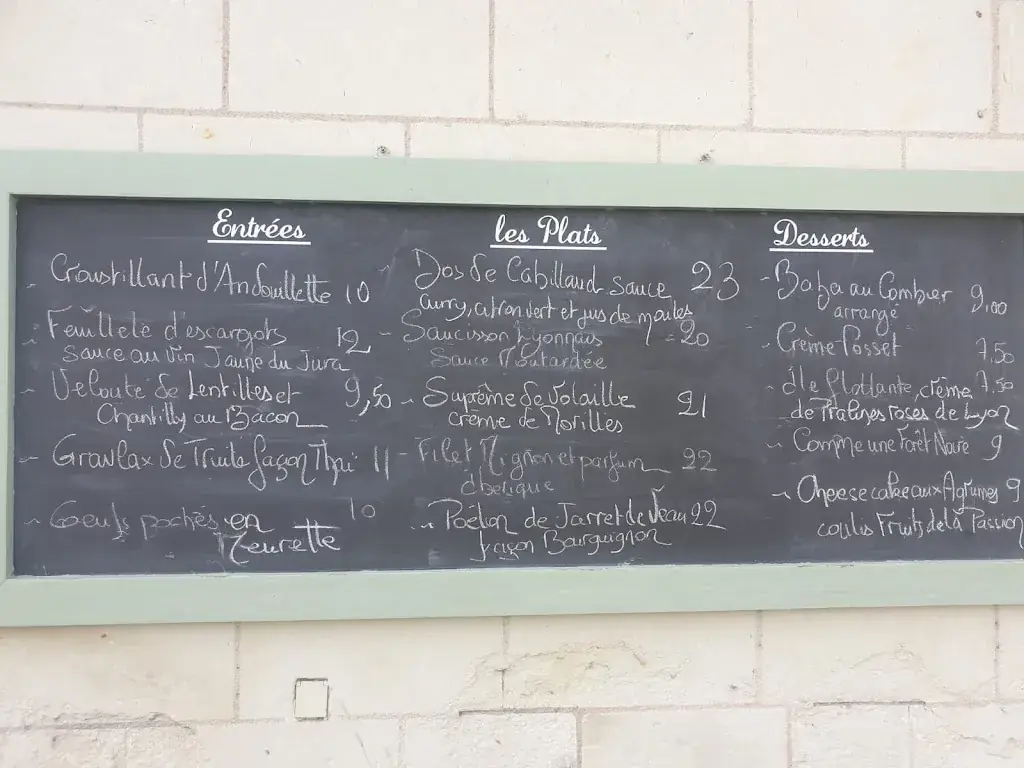 Entrées
- Croustillant d'Andouillette 10
- Feuilleté d'escargots 12
sauce au Vin Jaune du Jura
- Velouté de Lentilles et 9,50
Chantilly au Bacon
- Gravlax de Truite façon Thaï 11
- Oeufs pochés en 10
Meurette
les Plats
- Dos de Cabillaud sauce 23
curry, citron vert et jus de moules
- Saucisson Lyonnais 20
Sauce Moutardée
- Suprême de Volaille 21
crème de Morilles
- Filet Mignon et parfum 22
- Poêlon de Jarret de Veau 22
façon Bourguignon
Desserts
- Baba au Combier 9,00
arrangé
- Crème Posset 7,50
- île flottante, crème 7,50
de Pralines roses de Lyon
- Comme une Forêt Noire 9
- Cheesecake aux Agrumes 9
coulis Fruits de la Passion